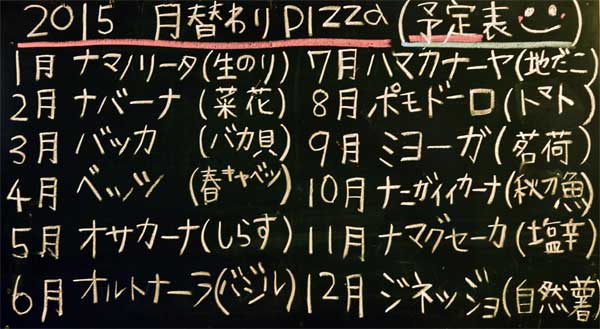 2015 月替わりpizza (予定表)
1月 ナマノリータ(生のり)
2月 ナバーナ(菜花)
3月 バッカ(バカ貝)
4月 ベッツ(春キャベツ)
5月 オサカーナ(しらす)
6月 オルトナーラ(バジル)
7月 ハマカナーヤ(地だこ)
8月 ポモドーロ(トマト)
9月 ミヨーガ(茗荷)
10月 ナニガイイカーナ(秋刀魚)
11月 ナマグセーカ(塩辛)
12月 ジネッジョ(自然薯)